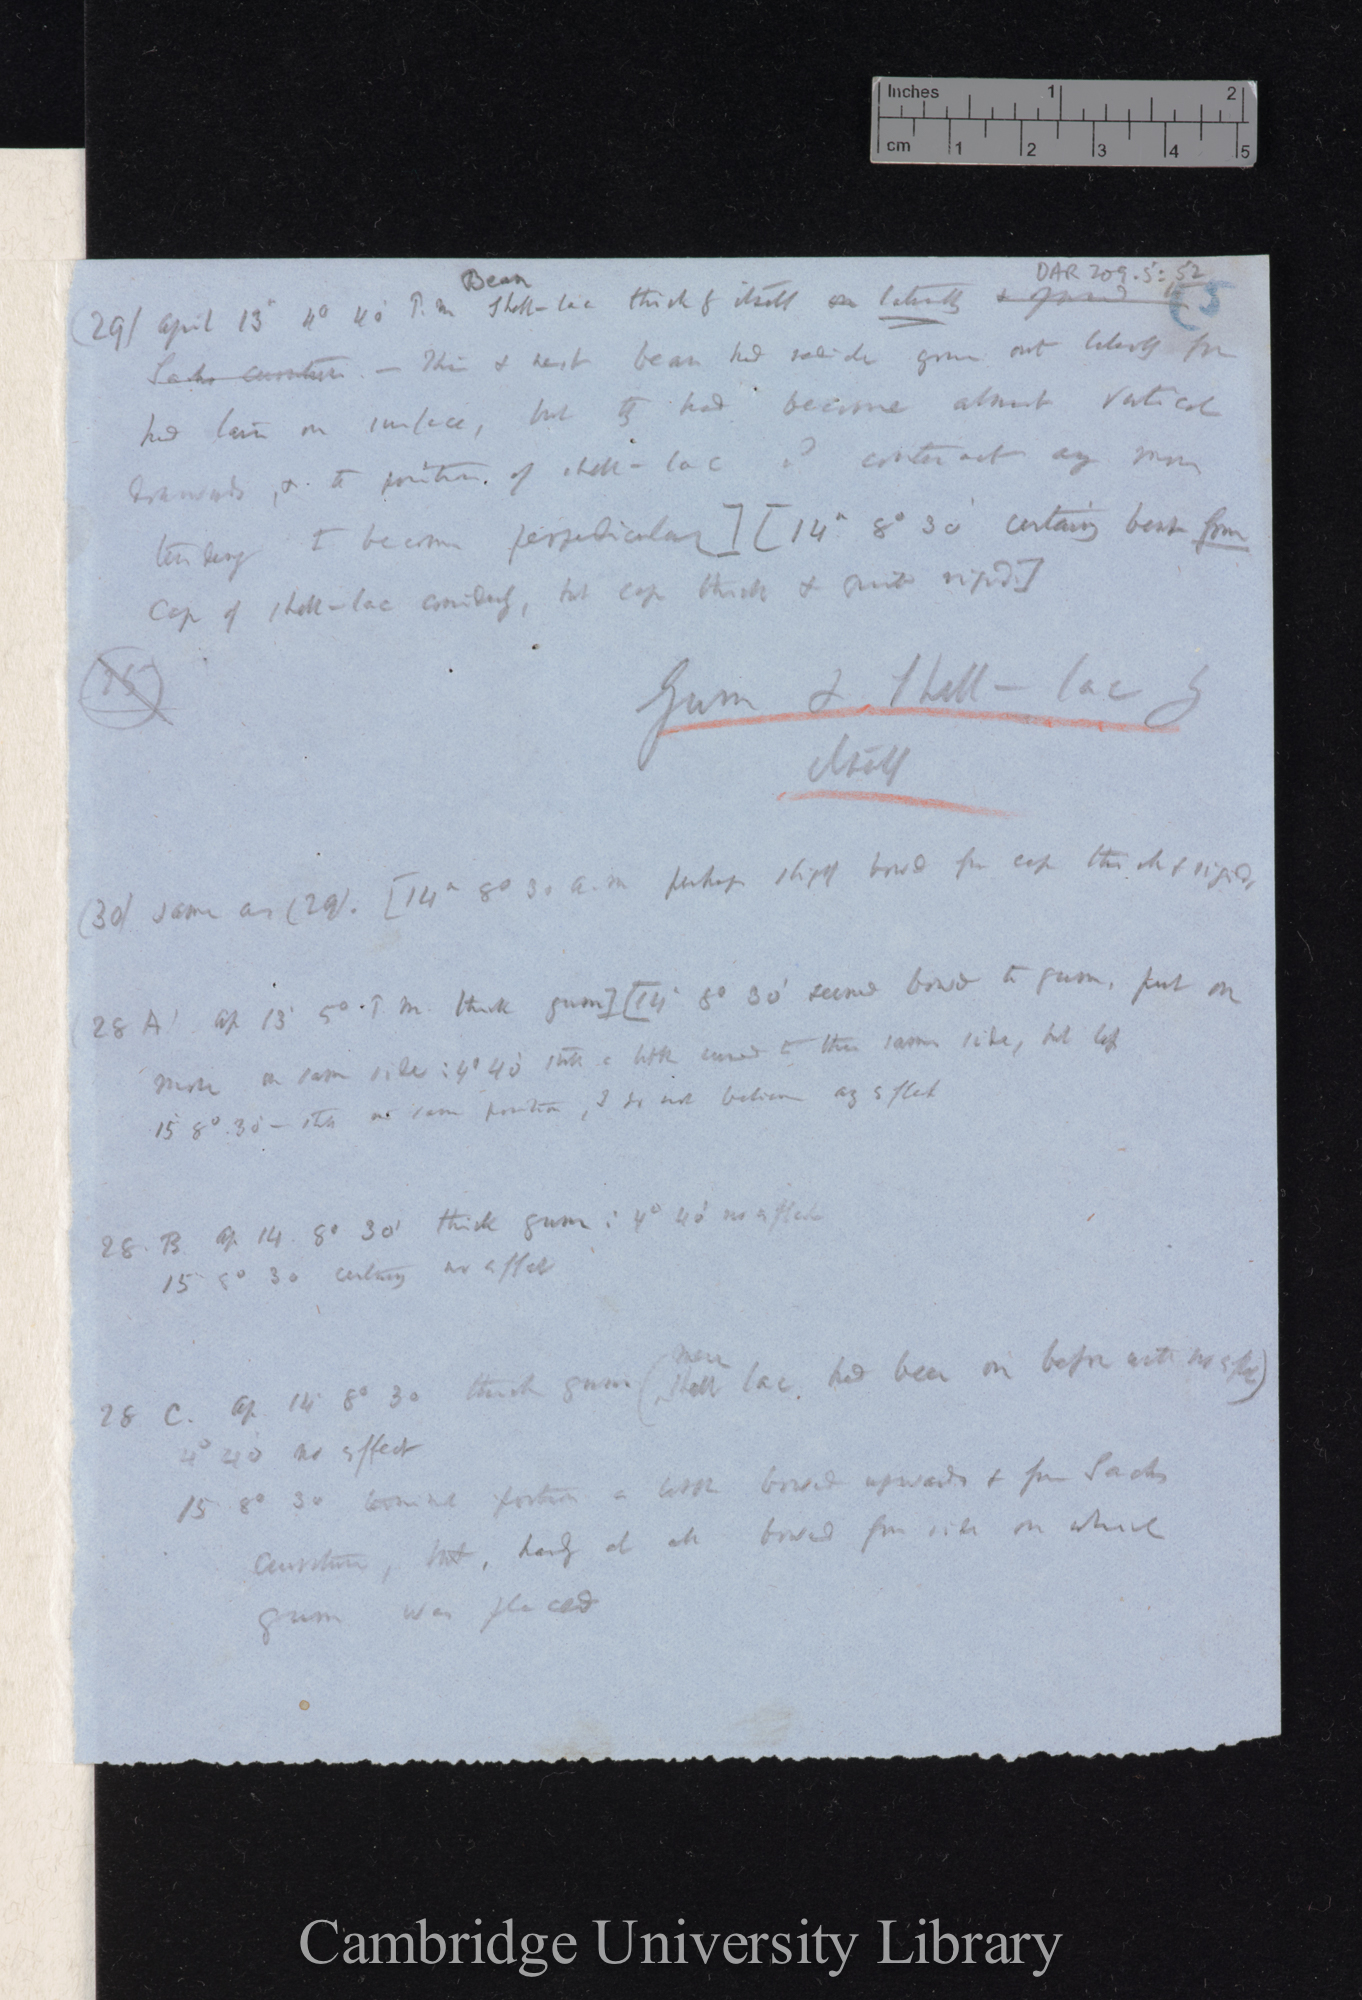 Inches 1 2
cm 1 2 3 4 5
DAR 209.5:52
Bean
(5
(29) April 13° 4° 40' P.m Shell-lac thick by itself on laterally
Sachs curvature. — This & next bean had radicle grown out laterally for
had lain on surface, but they had become almost vertical
downwards, & the position of shell-lac counteract any more
tendency to become perpendicular] [14° 8° 30' certainly bent from
Cap of shell-lac considerably, but cap thick & quite rigid.]
15
Gum & Shell-lac by
itself
(30) same as (29). [14° 8° 30 a.m perhaps slightly bowed from cap thick & rigid,
(28 A) Ap 13 5° P.m. thick gum] [14 8° 30' seemed bowed to gum, put on
more on same side: 4° 40' still a little curved to the same side, but left
15 8° 30' — still in same position, I do not believe any effect
28. B Ap 14. 8° 30' thick gum: 4° 40' no effect
15 8° 30 certainly no effect
more
28 C. Ap 14 8° 30 thick gum (Shell lac, had been on before with no effect)
4° 40 no effect
15 8° 30 terminal portion a little bowed upwards & from Sachs
curvature, but, hardly at all bowed from side on which
gum was placed
Cambridge University Library